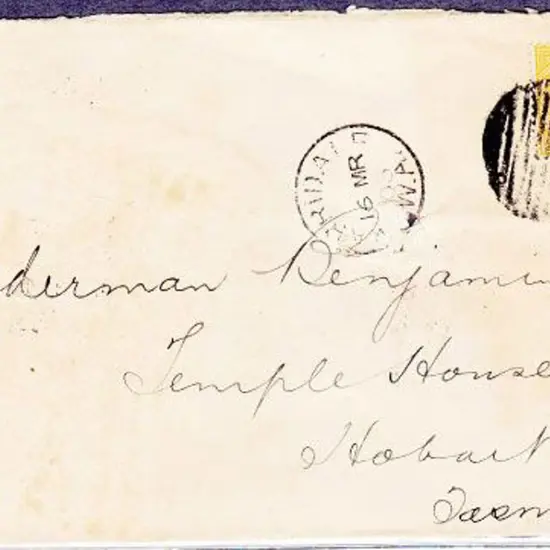 16 MR
derman Benjami
Temple House
Hobart
Tasm